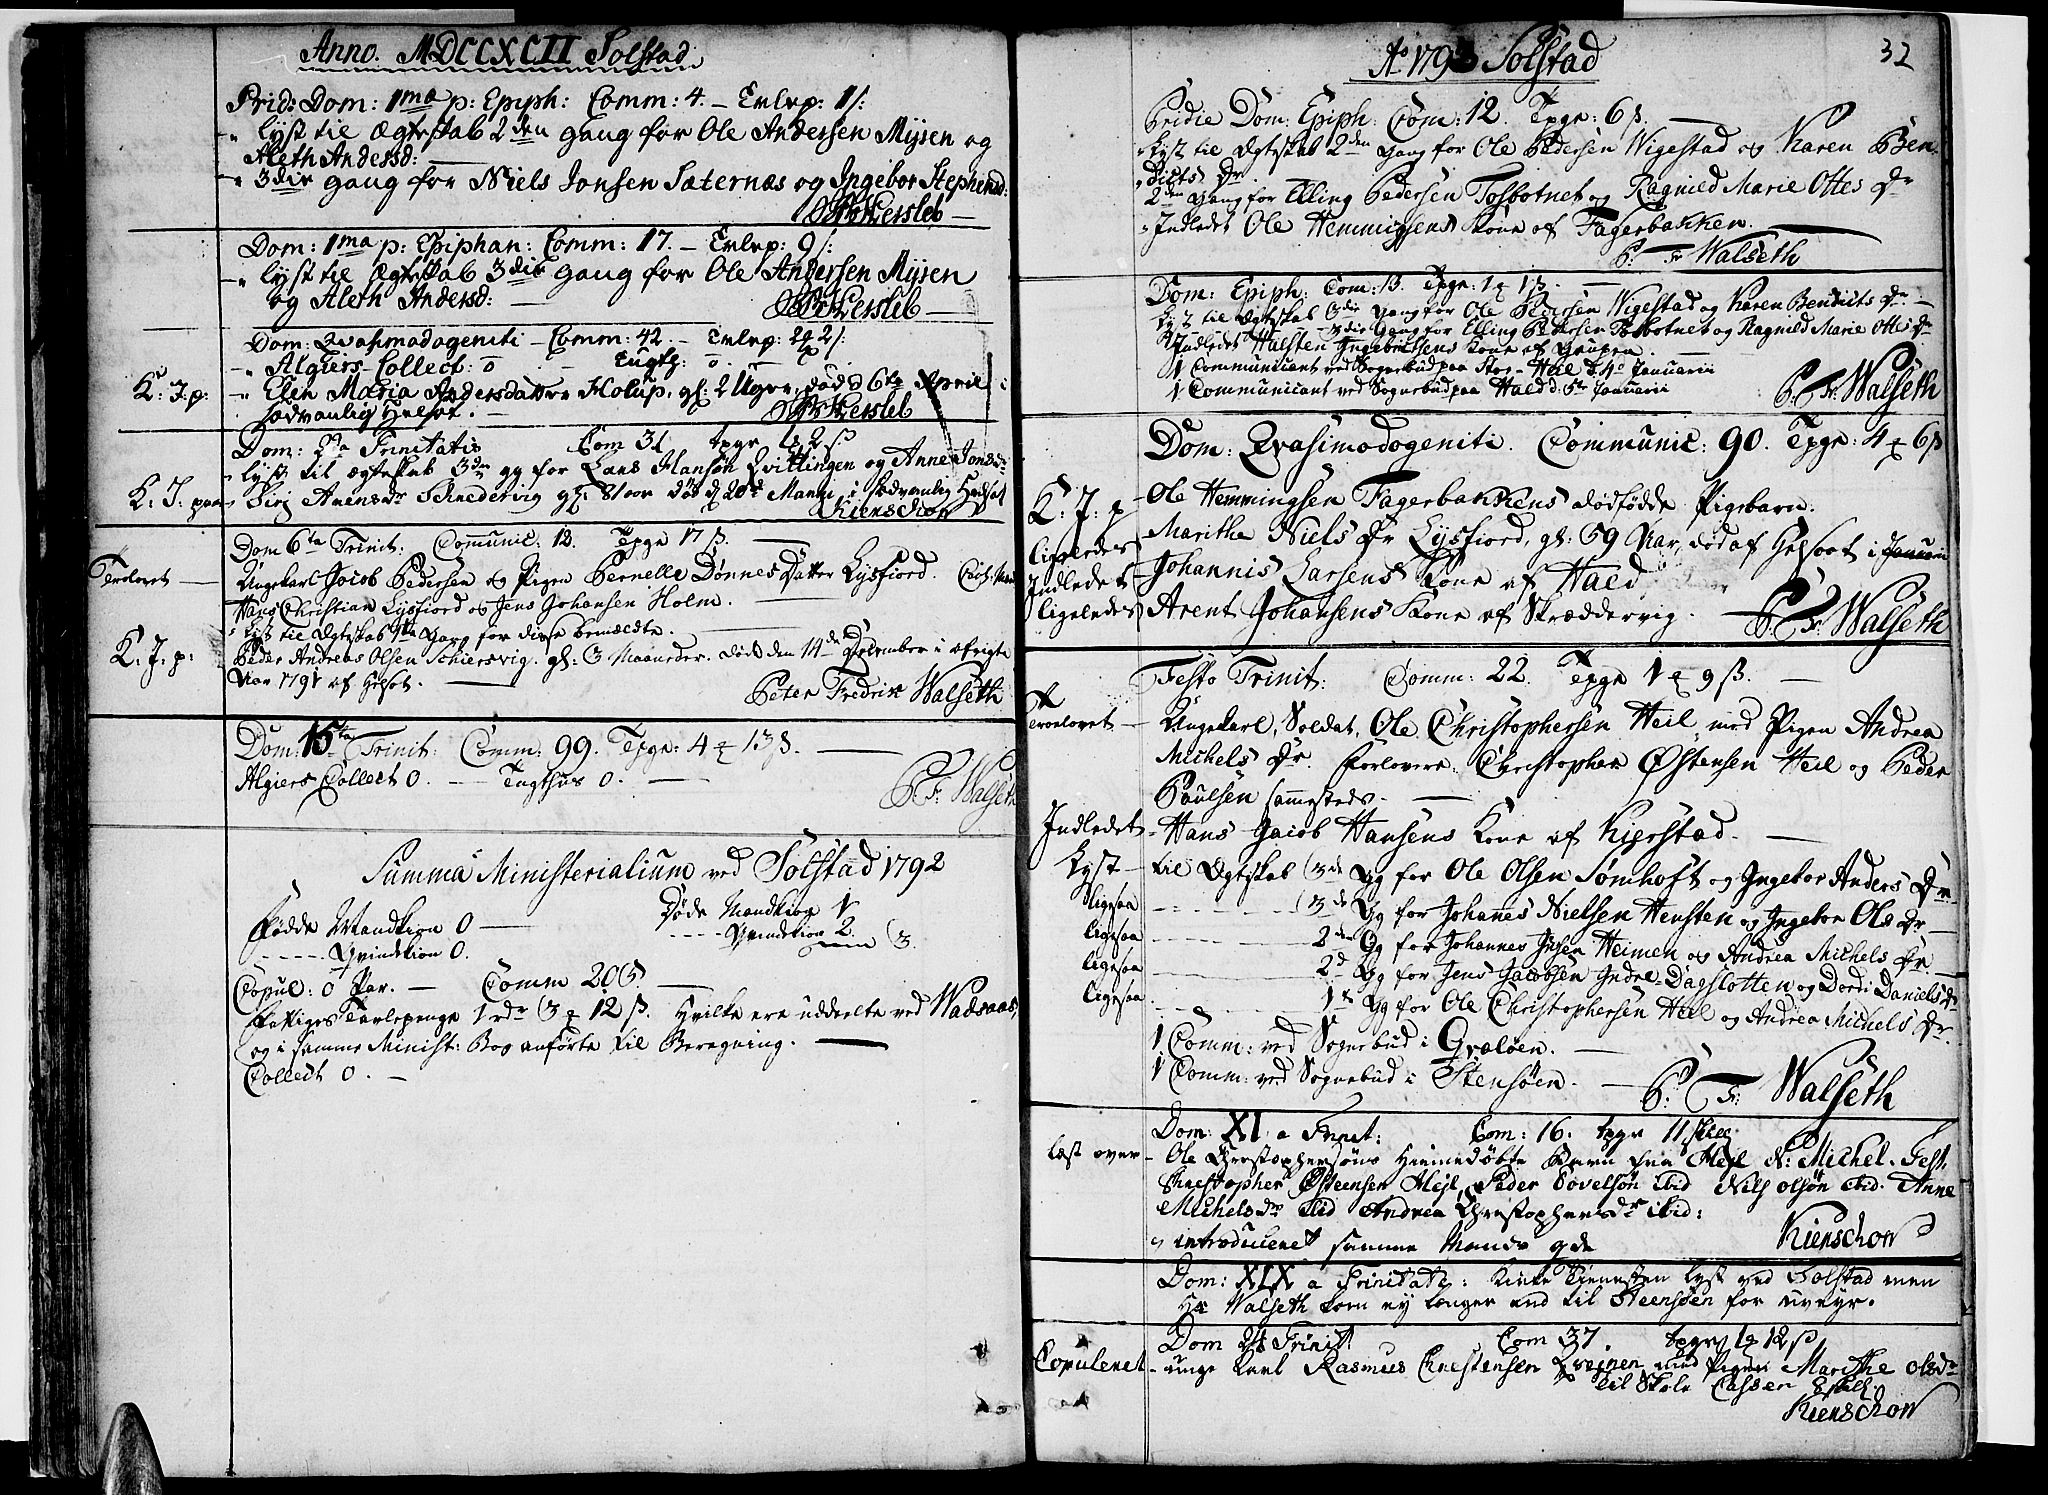 Anno. MDCCXCII Solstad
Prid: Dom: 1ma p: Epiph: Comm: 4. — Tvlvp: 1 s:
" lyst til Ægteskab 2den gang for Ole Andersen Mysen og
Aleth Andersd: —
" 3die gang for Niels Jonsen Sæternæs og Ingebor Stephensd:
Hersleb —
Dom: 1ma p: Epiphan: Comm: 17. — Tvlvp: 9 s:
" lyst til Ægteskab 3die gang for Ole Andersen Mysen
og Aleth Andersd: —
Hersleb —
Dom: Qvasimodogeniti — Comm: 42. — Tvlvp: 2 s:
" Algiers-Collect: 0 — Tugth: 0 —
K: J: p: " Elen Maria Andersdatter Holup, gl: 2 Uger, døde 6te April i
sædvanlig Helsot. —
Hersleb
Dom: 2da Trinitatis Com 31 tpgr 2 s
lyst til ægteskab 3die gg for Lars Hanson Qvittingen og Anne Jonsdr
K: J: paa Siri Arensdr Schredervig gl: 81 aar død d 20d Martii i sædvanlig Helsot
Kienschow
Dom 6ta Trinit: Communic: 12. Tpgr 17 s. —
Trolovet — Ungekarl Jacob Pedersen og Pigen Pernelle Dønnes Datter Lysfiord.
Hans Christian Lysfiord og Jens Johansen Holm. —
" Lyst til Ægteskab 1ste Gang for disse bemeldte. —
K: J: p: Peder Andreas Olsen Schiersvig. gl: 3 Maaneder. døde den 14de December i afvigte
Aar 1791 af Helsot. —
Peter Fredrik Walseth
Dom: 15ta Trinit: Comm: 99. Tpgr: 4 13 s. —
Algiers Collect 0. — Tugthus 0. —
P: F: Walseth
Summa Ministerialium ved Solstad 1792
Fødde Mandkion 0 — Døde Mandkion 1
- - - - - Qvindekion 0. - - - - Qvindekion 2.
3.
Copul: 0 Par. — Comm 205. —
Fattiges Tavlepenge 1 rdr 3 12 s. Hvilke ere uddeelte ved Wadsaas,
og i samme Minist: Bog anførte til Beregning. —
Collect 0. —
Ao 1793 Solstad
32
Pridie Dom: Epiph: Com: 12. Tpgr: 6 s. —
Lyst til Ægteskab 2den Gang for Ole Pedersen Wigestad og Karen Ben-
" dicts Dr
2den Gang for Elling Pedersen Tosbotnet og Ragnild Marie Ottes Dr
" Indledet Ole Hemmingsens Kone af Fagerbakken.
P: Fr: Walseth
Dom: Epiph: Com: 13. Tpgr: 1 1 s. —
Lyst til Ægteskab 3die Gang for Ole Pedersen Wigestad og Karen Bendicts Dr —
— 3die Gang for Elling Pedersen Tosbotnet og Ragnild Marie Ottes Dr
Indledet Halsten Ingebrigtsens Kone af
1 Communicant ved Sognebud paa Stor-Heil d. 4de Januarii
1 Communicant ved Sognebud paa Haed d. 5te Januarii
P: Fr: Walseth
Dom: Qvasimodogeniti. Communic: 90. Tpgr: 4 6 s
K: J: p — Ole Hemmingsen Fagerbakkens dødfødde Pigebarn.
ligeledes Marithe Niels Dr Lysfiord, gl: 59 Aar, død af Helsoot i Januari
Indledet Johannis Larsens Kone af Haed
ligeledes Arent Johansens Kone af Skræddervig.
P: Fr: Walseth
Festo Trinit: Comm: 22. Tpgr 1 9 s. —
Troelovet — Ungekarl, Soldat, Ole Christophersen Heil, med Pigen Andrea
Michels Dr. Forlovere: Christopher Østensen Heil og Peder
Poulsen sammesteds. —
Indledet — Hans Jacob Hansens Kone af Kierstad. —
Lyst — til Ægteskab 3die Gg for Ole Olsen Sømhoft og Ingebor Anders Dr —
ligesaa - - - - - 3die Gg for Johanes Nielsen Hensten og Ingebor Ols Dr —
ligesaa - - - - - 2den Gg for Johannes Jnsen Heimen og Andrea Michels Dr.
ligesaa - - - - - 2d Gg for Jens Jacobsen Indre-Dagslotten og Dordi Daniels dr
ligesaa - - - - - 1te Gg for Ole Christophersen Heil og Andrea Michels Dr.
1 Comm: ved Sognebud i Qvaløen. —
1 Comm: ved Sognebud i Stensøen. —
P: Fr: Walseth
Dom: XI a Trinit: Com: 16. tpgr 11 skill:
læst over — Ole Christophersøns hiemedøbte Barn fra Heil N: Michel. Test.
Christopher Østensen Heil, Peder Povelsøn ibid Nils olsøn ibid. Anne
Michelsdr ibid Andrea Christophersdr ibid:
" introduceret samme Mands qde
Kienschow
Dom: XIX a Trinitat: Kirke Tienesten lyst ved Solstad men
Hr Walseth kom ey længer end til Steensøen for uveyr.
Dom 24 Trinit Com 37. tpgr 1 12 s
Copuleret — unge karl Rasmus Christensen med Pigen Marithe olsdr
til Skole Cassen 8 sk:
Kienschow